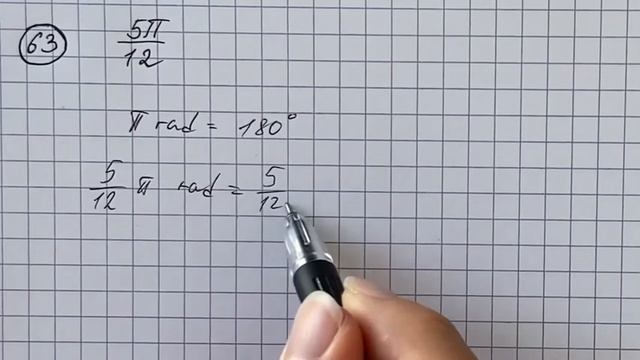 63 5π/12
π rad = 180°
5/12 π rad = 5/12